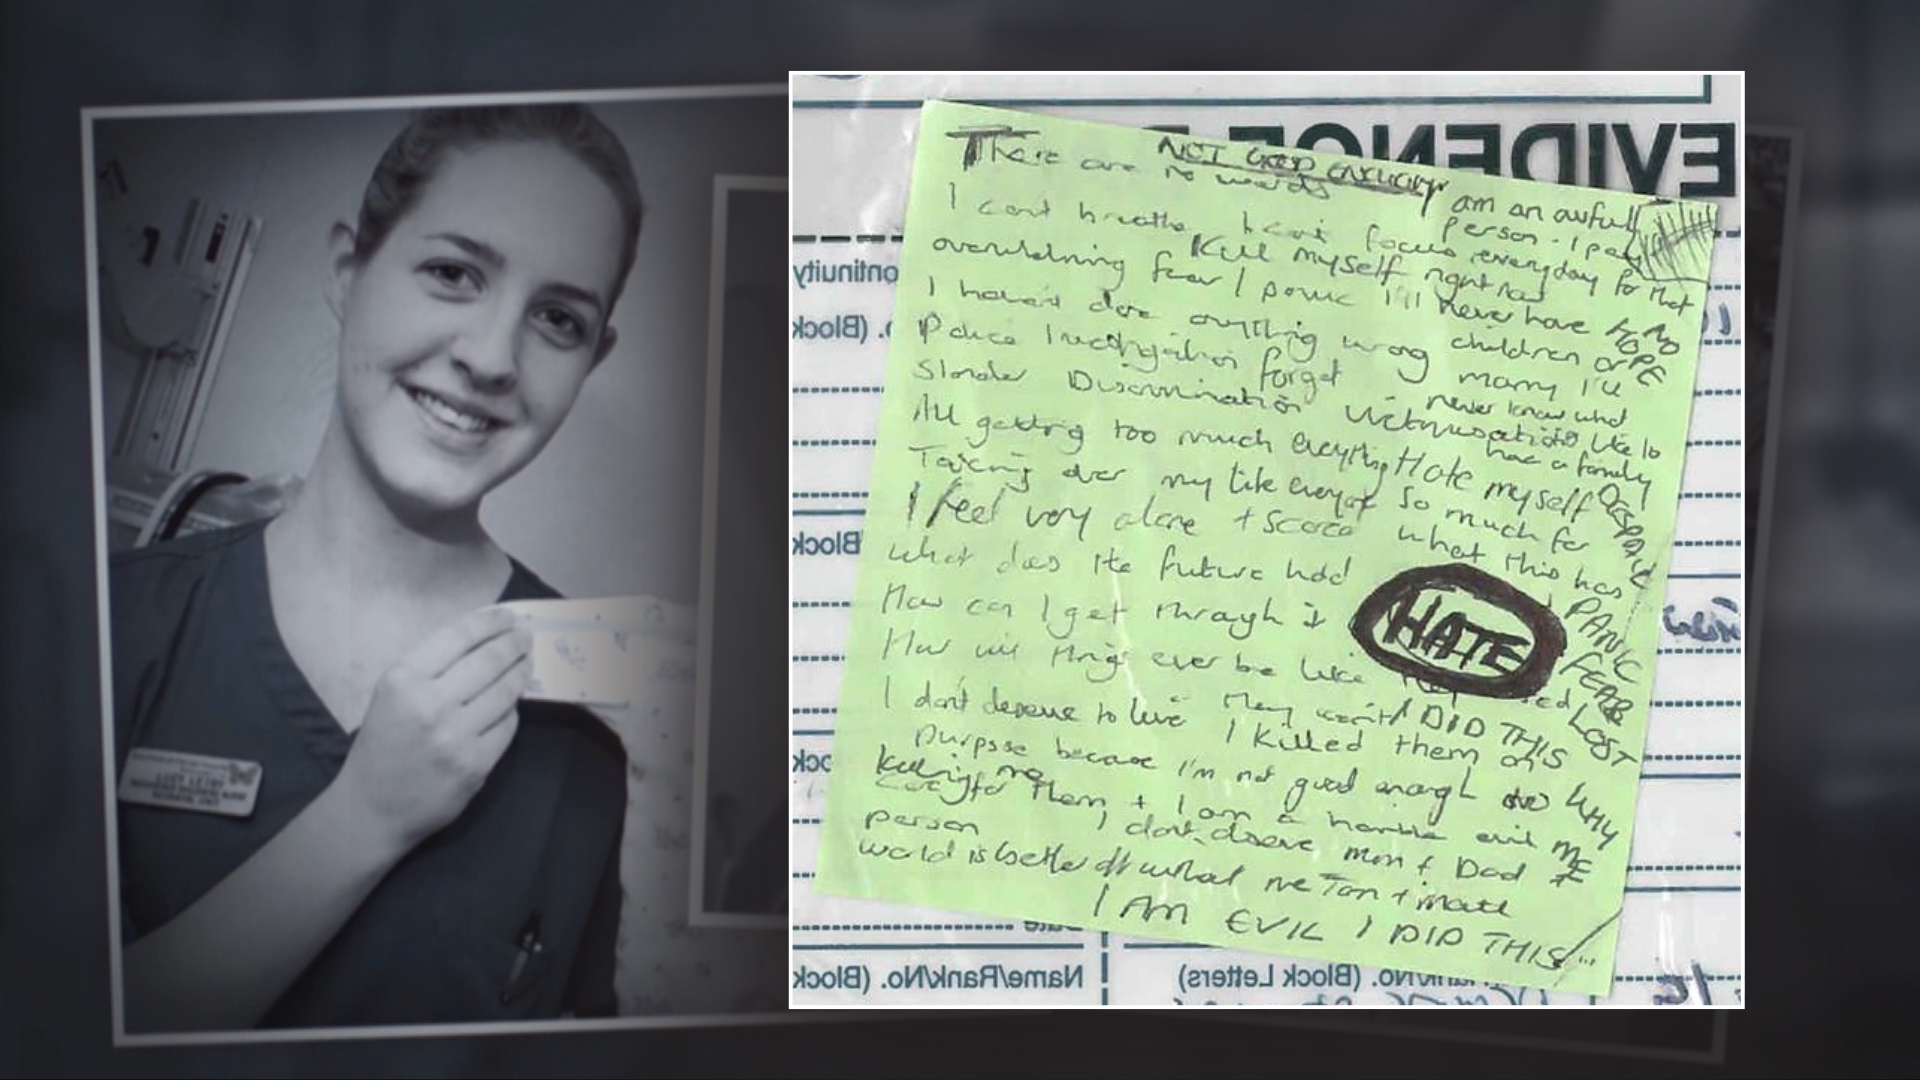 EVIDENCE
NOT GOOD ENOUGH
There are no words
I am an awful person - I pay everyday for that
I can't breathe I can't focus
Kill myself right now
overwhelming fear / panic
I'll never have children or marry I'll never know what
NO HOPE
I haven't done anything wrong
it's like to have a family
Police Investigation forget
Slander Discrimination Victimisation
All getting too much everything
Hate myself so much for what this has
DESPAIR
Taking over my life everyone
I feel very alone + scared
What does the future hold
How can I get through it
HATE
PANIC
FEAR
LOST
How will things ever be like they used
I don't deserve to live
They won't
I DID THIS
WHY ME
I killed them on purpose because I'm not good enough
killing me
care for them + I am a horrible evil person
I don't deserve mom + Dad
world is better off without me Tom + Matt
I AM EVIL I DID THIS...
Continuity
No. (Block
Block
Name/Rank/No. (Block
(Block Letters)
LUCY LETBY